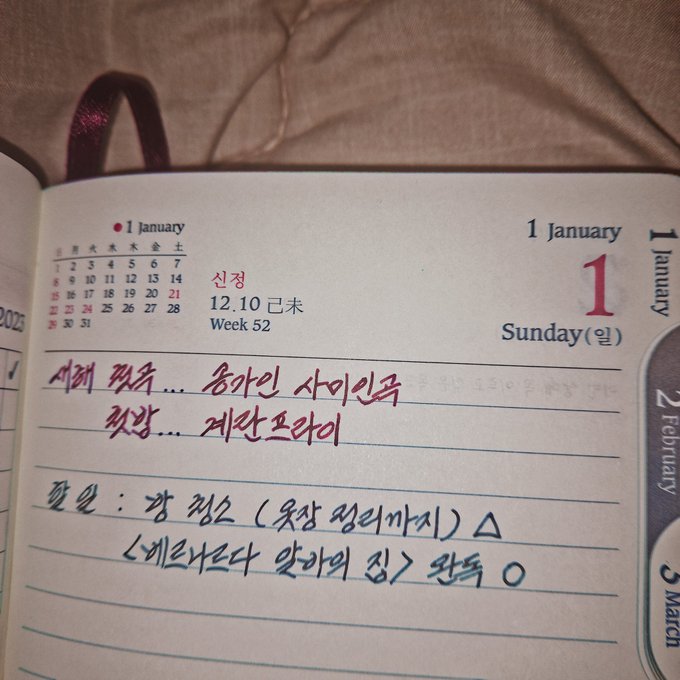 1 January
日 月 火 水 木 金 土
1 2 3 4 5 6 7
8 9 10 11 12 13 14
15 16 17 18 19 20 21
22 23 24 25 26 27 28
29 30 31
신정
12.10 己未
Week 52
1 January
1
Sunday(일)
새해 첫곡... 송가인 사미인곡
첫밥... 계란프라이
할 일 : 방 청소 (옷장 정리까지) △
<베르나르다 알바의 집> 완독 ○
1 January
2 February
3 March
2023
✓